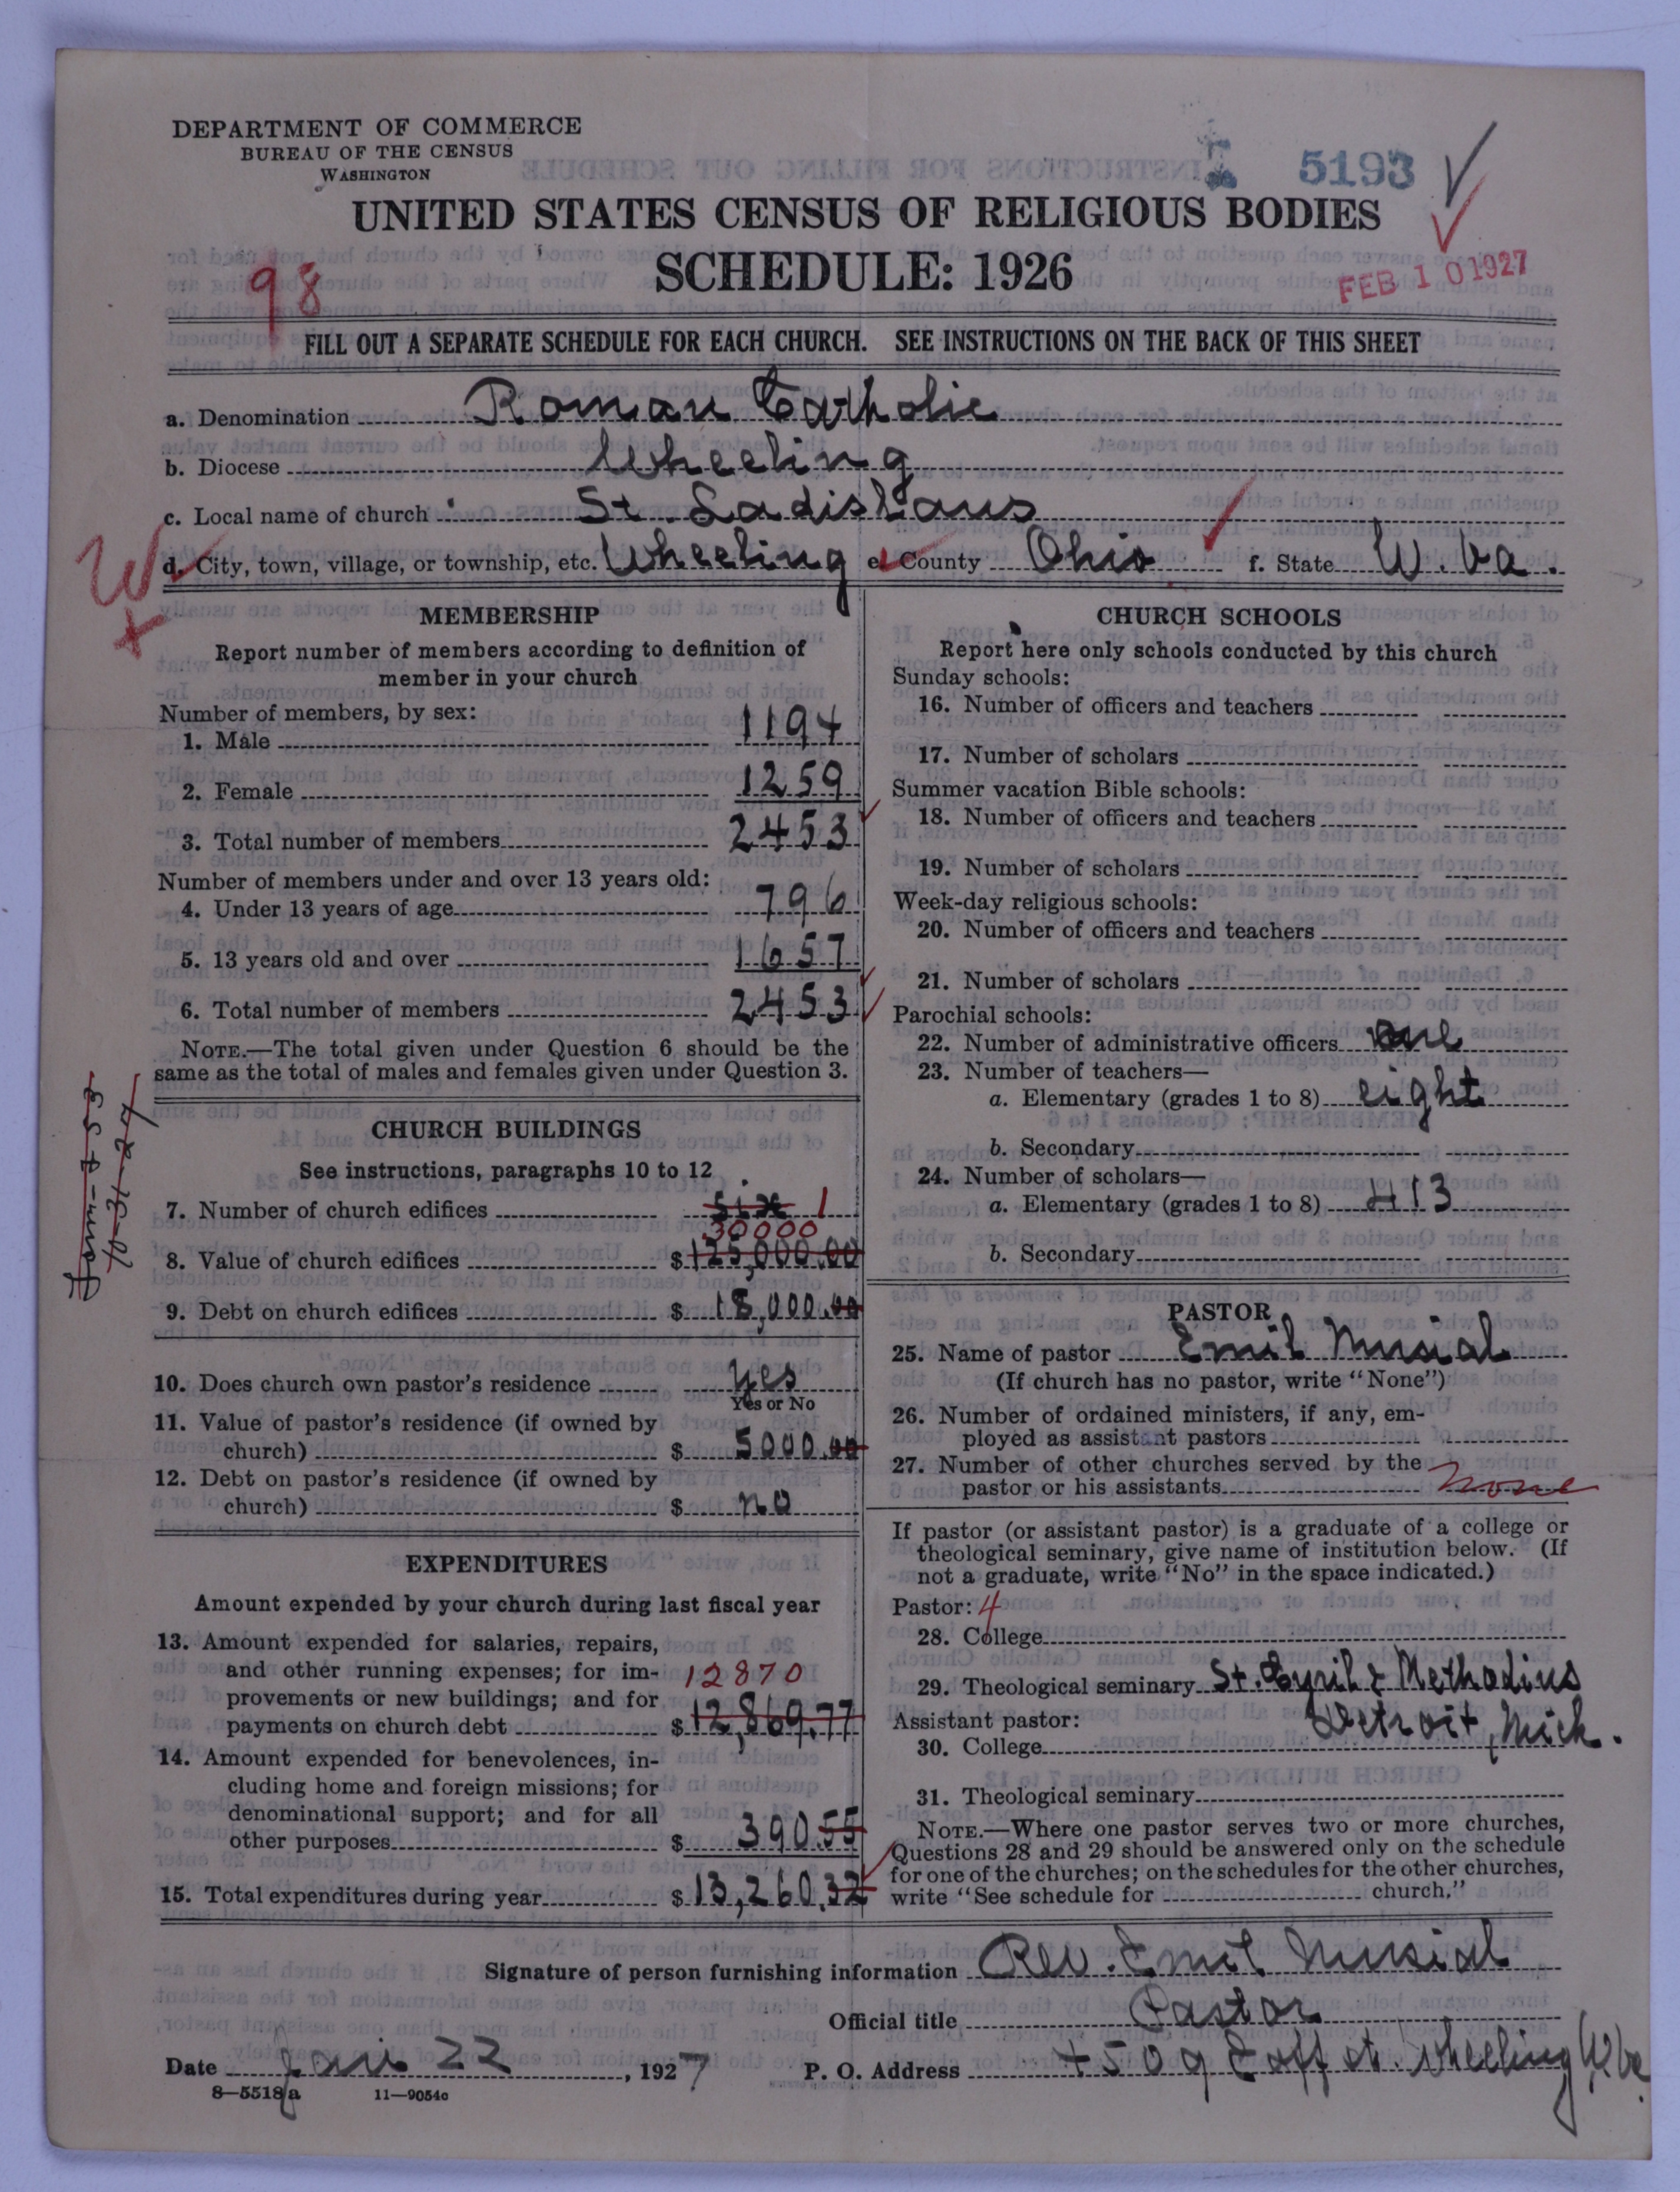 DEPARTMENT OF COMMERCE
BUREAU OF THE CENSUS
WASHINGTON
5193
UNITED STATES CENSUS OF RELIGIOUS BODIES
SCHEDULE: 1926
98
FEB 10 1927
FILL OUT A SEPARATE SCHEDULE FOR EACH CHURCH. SEE INSTRUCTIONS ON THE BACK OF THIS SHEET
a. Denomination Roman Catholic
b. Diocese Wheeling
c. Local name of church St. Ladislaus
d. City, town, village, or township, etc. Wheeling e. County Ohio f. State W. Va.
W
MEMBERSHIP
Report number of members according to definition of
member in your church
Number of members, by sex:
1. Male 1194
2. Female 1259
3. Total number of members 2453
Number of members under and over 13 years old:
4. Under 13 years of age 796
5. 13 years old and over 1657
6. Total number of members 2453
NOTE.—The total given under Question 6 should be the
same as the total of males and females given under Question 3.
CHURCH BUILDINGS
See instructions, paragraphs 10 to 12
7. Number of church edifices six 1
30000
8. Value of church edifices $125,000.00
9. Debt on church edifices $18,000.00
10. Does church own pastor's residence yes
Yes or No
11. Value of pastor's residence (if owned by
church) $5000.00
12. Debt on pastor's residence (if owned by
church) $ no
EXPENDITURES
Amount expended by your church during last fiscal year
13. Amount expended for salaries, repairs,
and other running expenses; for im- 12870
provements or new buildings; and for
payments on church debt $12,869.77
14. Amount expended for benevolences, in-
cluding home and foreign missions; for
denominational support; and for all
other purposes $390.55
15. Total expenditures during year $13,260.32
CHURCH SCHOOLS
Report here only schools conducted by this church
Sunday schools:
16. Number of officers and teachers
17. Number of scholars
Summer vacation Bible schools:
18. Number of officers and teachers
19. Number of scholars
Week-day religious schools:
20. Number of officers and teachers
21. Number of scholars
Parochial schools:
22. Number of administrative officers one
23. Number of teachers—
a. Elementary (grades 1 to 8) eight
b. Secondary
24. Number of scholars—
a. Elementary (grades 1 to 8) 413
b. Secondary
PASTOR
25. Name of pastor Emil Musial
(If church has no pastor, write "None")
26. Number of ordained ministers, if any, em-
ployed as assistant pastors
27. Number of other churches served by the
pastor or his assistants none
If pastor (or assistant pastor) is a graduate of a college or
theological seminary, give name of institution below. (If
not a graduate, write "No" in the space indicated.)
Pastor: 4
28. College
29. Theological seminary St. Cyril & Methodius
Assistant pastor: Detroit, Mich.
30. College
31. Theological seminary
NOTE.—Where one pastor serves two or more churches,
Questions 28 and 29 should be answered only on the schedule
for one of the churches; on the schedules for the other churches,
write "See schedule for church."
Signature of person furnishing information Rev. Emil Musial
Official title Pastor
Date Jan 22, 1927 P. O. Address 4509 Eoff st. Wheeling W. Va.
8—5518a 11—9054c